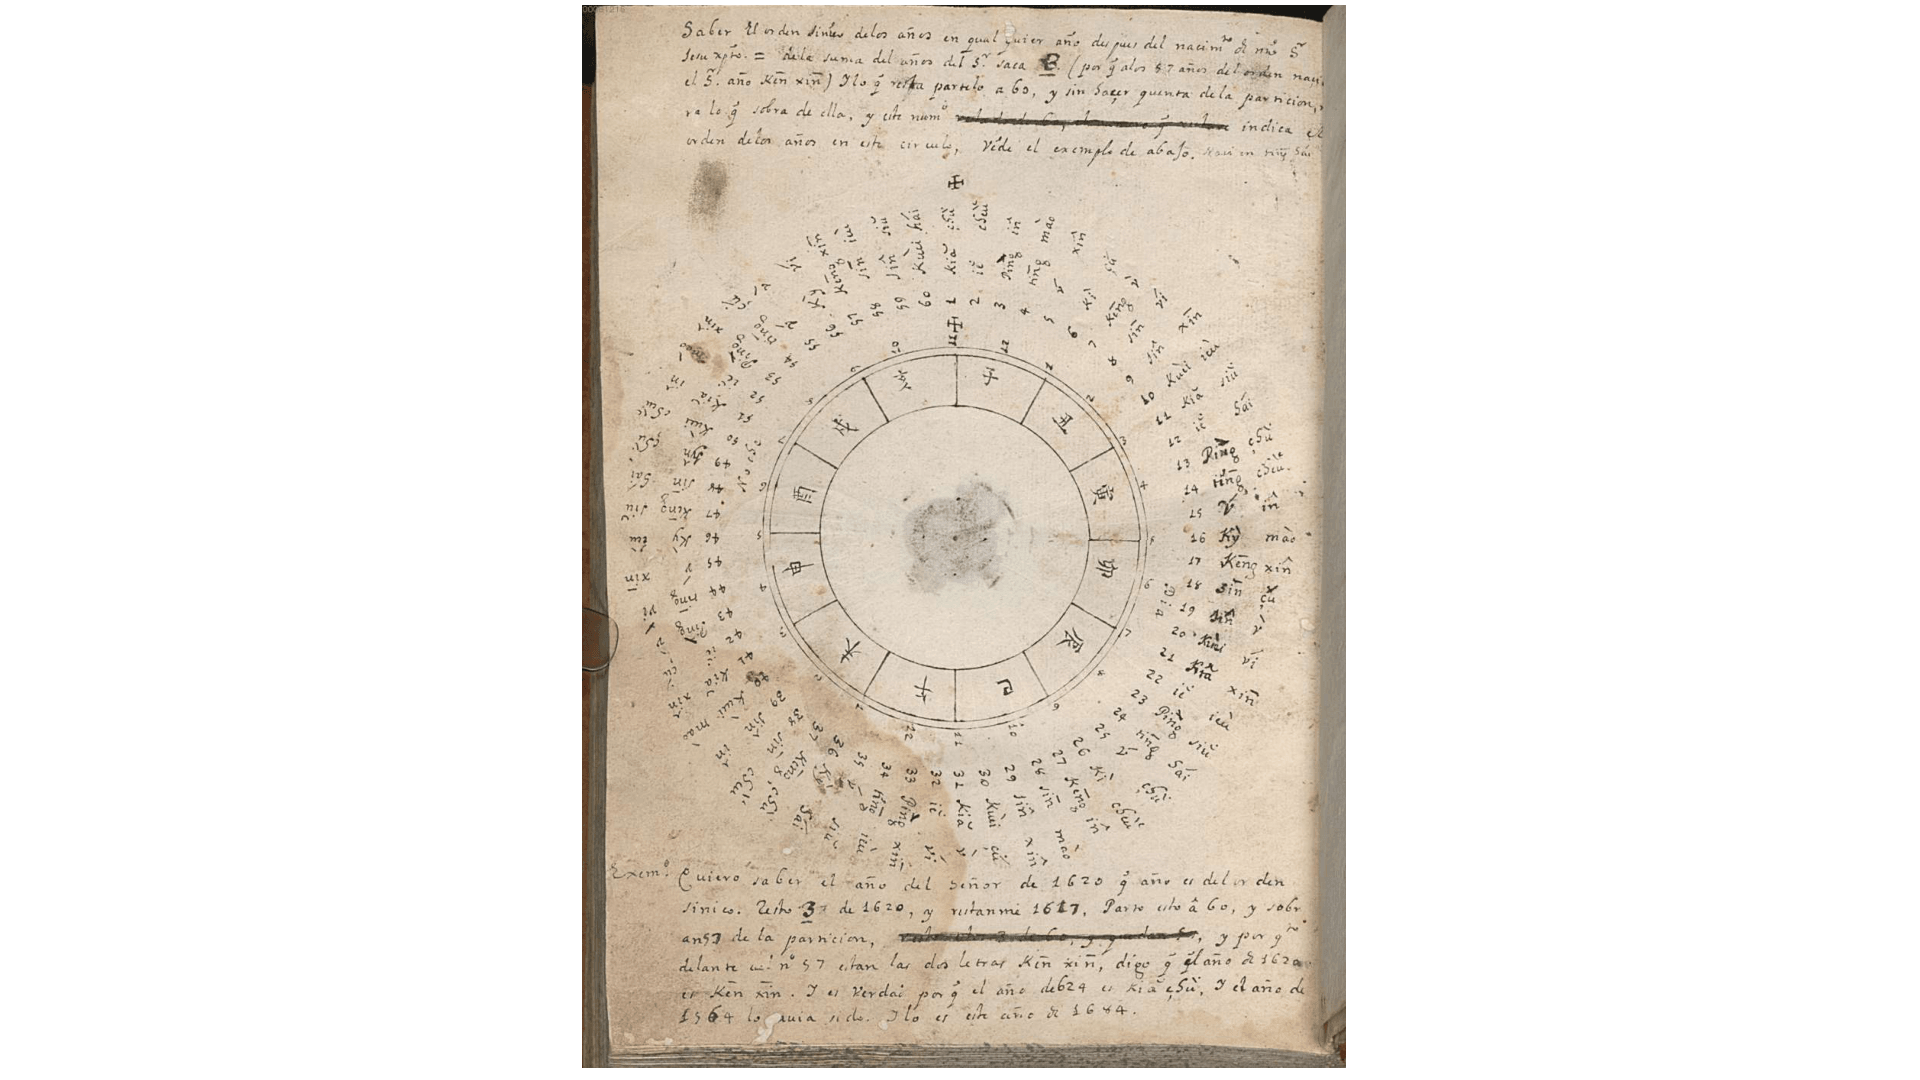 Saber El orden sinico delos años en qual quier año despues del nacimto de nro Sr
Jesu xpto. = dela suma del años del Sr. saca 3. (por q̃ alos 57 años del orden naci
el Sr. año Ken xin) I lo q̃ resta partelo a 60, y sin haçer quenta dela particion,
ra lo q̃ sobra de ella, y este numo indica el
orden delos años en este circulo, Vède el exemplo de abajo.
✠
1 kiă çhŭ
2 iĕ cheu
3 Ping in
4 ting mao
5 v xin
6 ki sú
7 Keng v
8 sin vi
9 sin xin
10 Kuei ieu
11 Kiă siŭ
12 iĕ hái
13 Ping çhŭ
14 ting cheu
15 V in
16 Ky mao
17 Keng xin
18 sin çu
19 sin v
20 Kuei vi
21 Kiă xin
22 iĕ ieu
23 Ping siŭ
24 ting hái
25 v çhŭ
26 Ki cheu
27 Keng in
28 sin mao
29 sin xin
30 Kuei çu
31 Kiă v
32 iĕ vi
33 Ping xin
34 ting ieu
35 v siŭ
36 hai
37 Keng çhu
38 sin cheu
39 sin in
40 Kuei mao
41 Kia xin
42 ie çu
43 Ping v
44 ting vi
45 v xin
46 Ky ieu
47 Keng siu
48 sin hai
49 sin çhu
50 Kuei cheu
51 Kia in
52 ie mao
53 Ping xin
54 ting çu
55 v v
56 Ky vi
57 Keng xin
58 sin ieu
59 sin siu
60 Kuei hái
✠
11 12 1 2 3 4 5 6 7 8 9 10 11 12 1 2 3 4 5 6 7 8 9 10
子 丑 寅 卯 辰 巳 午 未 申 酉 戌 亥
Dia
Noche
Exemo. Quiero saber el año del Señor de 1620 q̃ año es del orden
sinico. Resto 3 de 1620, y restanme 1617, Parto esto â 60, y sobr
an 57 de la particion, y por qto
delante del no 57 estan las dos letras Ken xin, digo q̃ el año de 1620
es Ken xin. I es Verdad por q̃ el año de 624 es Kiă çhŭ, I el año de
1564 lo avia sido. I lo es este año de 1684.